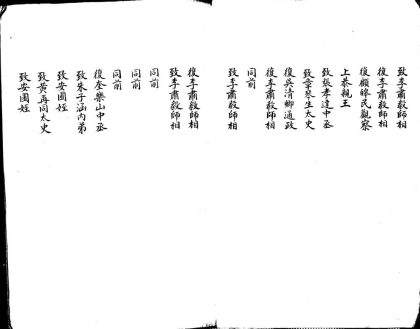 致李肅毅師相
復李肅毅師相
復顧皞民觀察
上恭親王
致張孝達中丞
致章琴生太史
復吳清卿通政
復李肅毅師相
同前
致李肅毅師相
復李肅毅師相
致李肅毅師相
同前
同前
同前
復奎樂山中丞
致朱子涵內弟
致安圃姪
致黃再同太史
致安圃姪